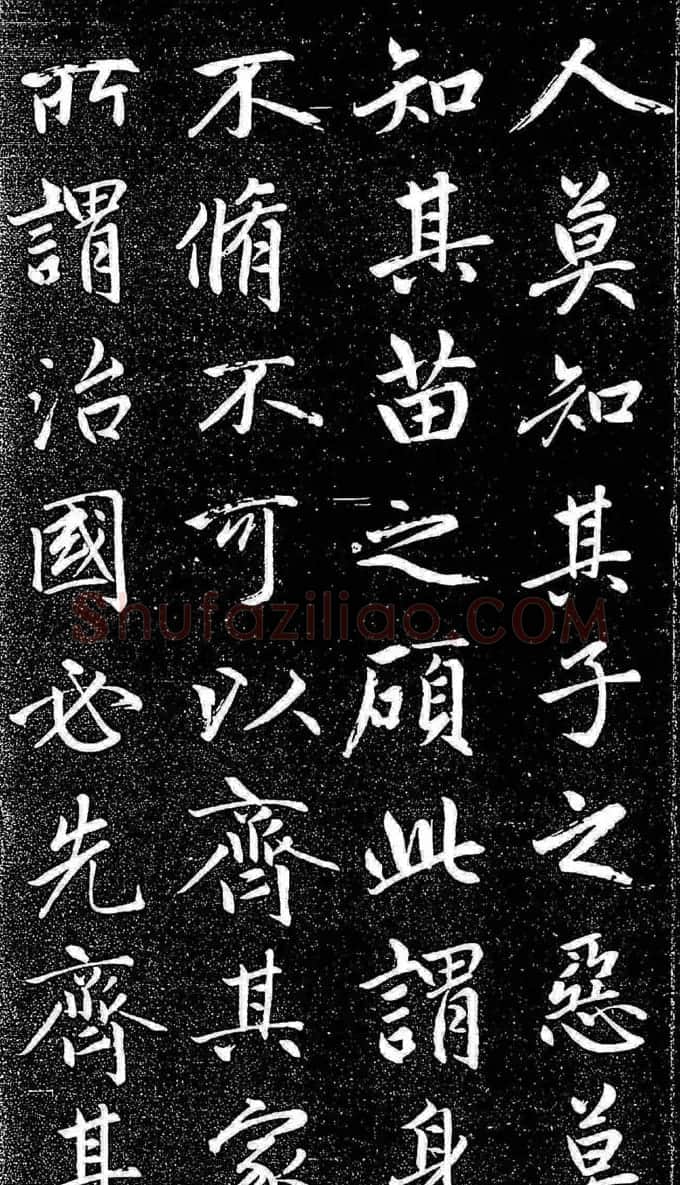 人莫知其子之惡莫
知其苗之碩此謂身
不脩不可以齊其家
所謂治國必先齊其
Shufaziliao.COM